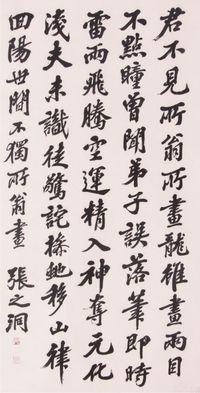 君不見所翁所畫龍雖畫兩目
不點瞳曾聞弟子誤落筆即時
雷雨飛騰空運精入神奪元化
淺夫未識徒驚詫操蛇移山律
回陽世間不獨所翁畫
張之洞